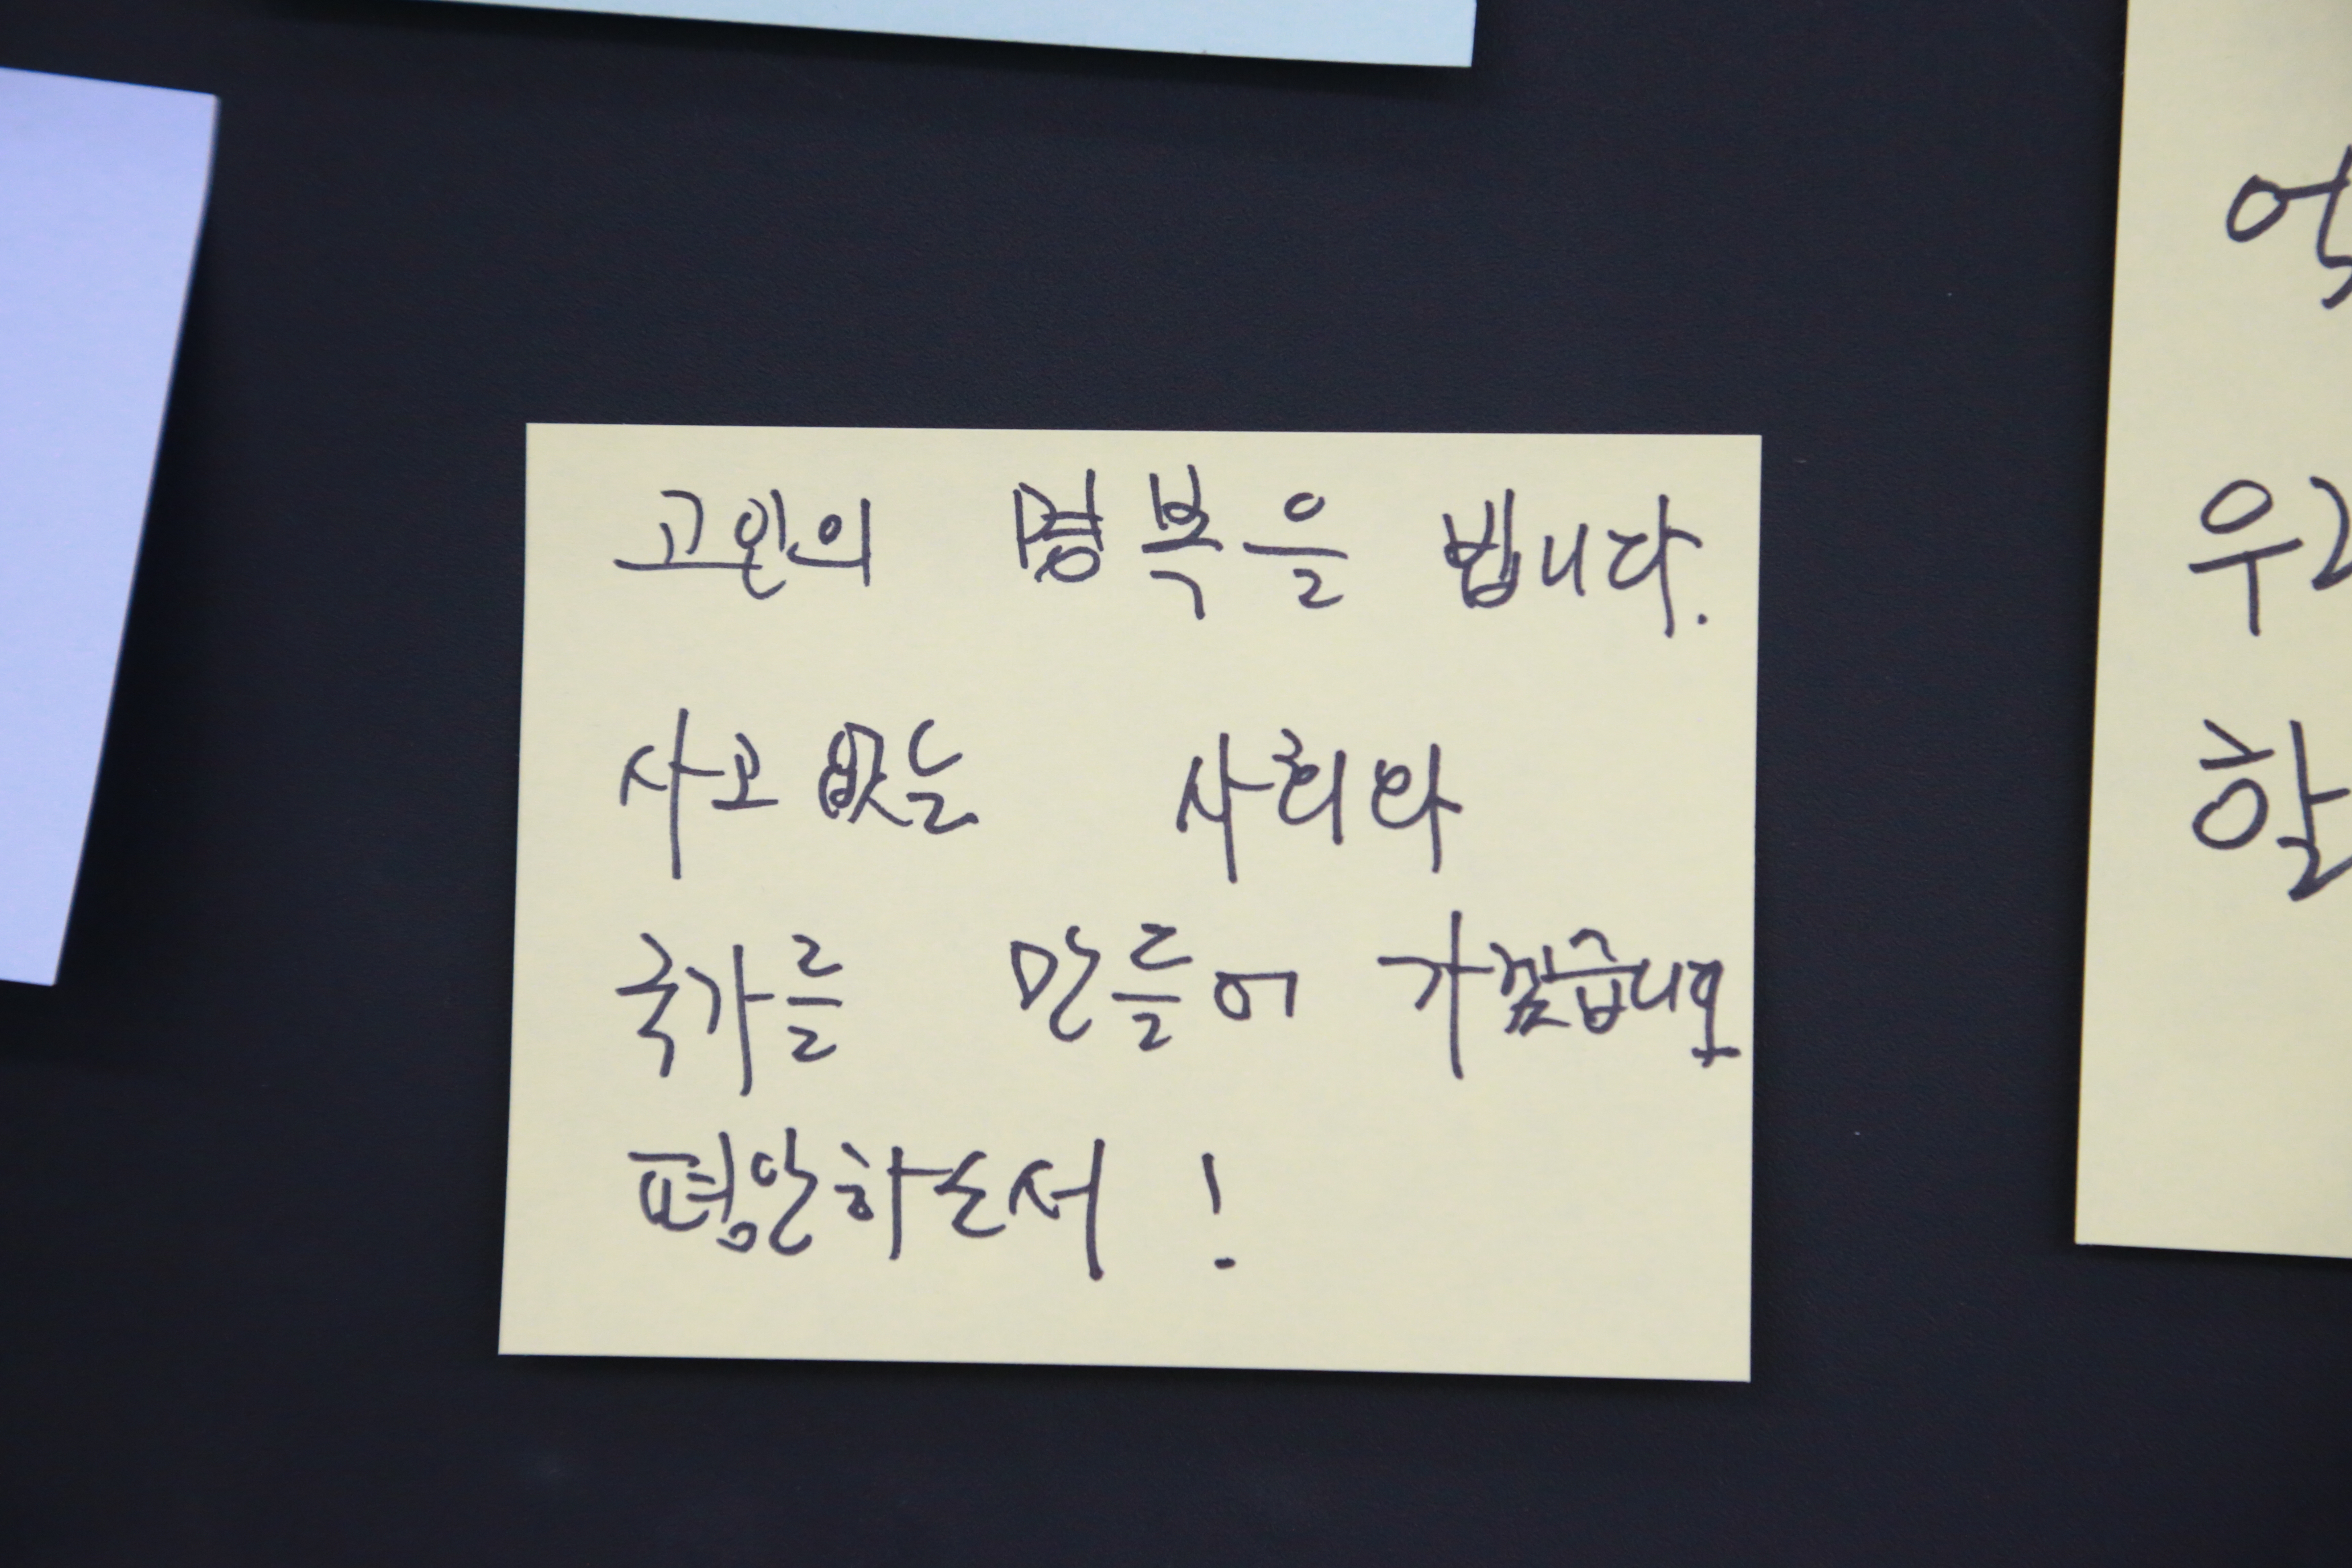 고인의 명복을 빕니다.
사고 없는 사회와
국가를 만들어 가겠습니다
평안하소서!
우리